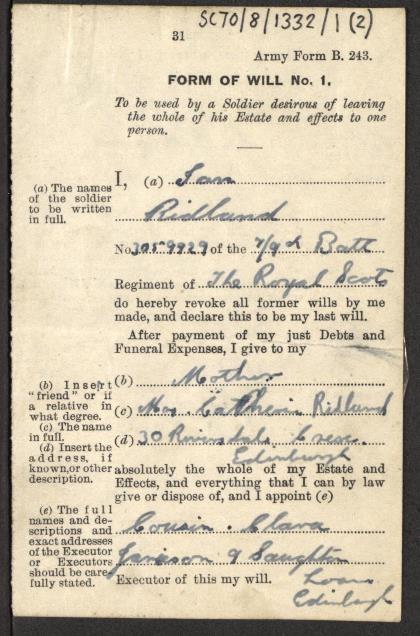 SC70/8/1332/1(2)
31
Army Form B. 243.
FORM OF WILL No. 1.
To be used by a Soldier desirous of leaving
the whole of his Estate and effects to one
person.
(a) The names
of the soldier
to be written
in full.
I, (a) Ian
Ridland
No. 3059929 of the 7/9th Batt
Regiment of The Royal Scots
do hereby revoke all former wills by me
made, and declare this to be my last will.
After payment of my just Debts and
Funeral Expenses, I give to my
(b) Insert
"friend" or if
a relative in
what degree.
(c) The name
in full.
(d) Insert the
address, if
known, or other
description.
(b) Mother
(c) Mrs. Catherin Ridland
(d) 30 Cresc.
Edinburgh
absolutely the whole of my Estate and
Effects, and everything that I can by law
give or dispose of, and I appoint (e)
(e) The full
names and de-
scriptions and
exact addresses
of the Executor
or Executors
should be care-
fully stated.
Cousin. Clara
Jamieson 9 Saughton
Executor of this my will. Loan
Edinburgh